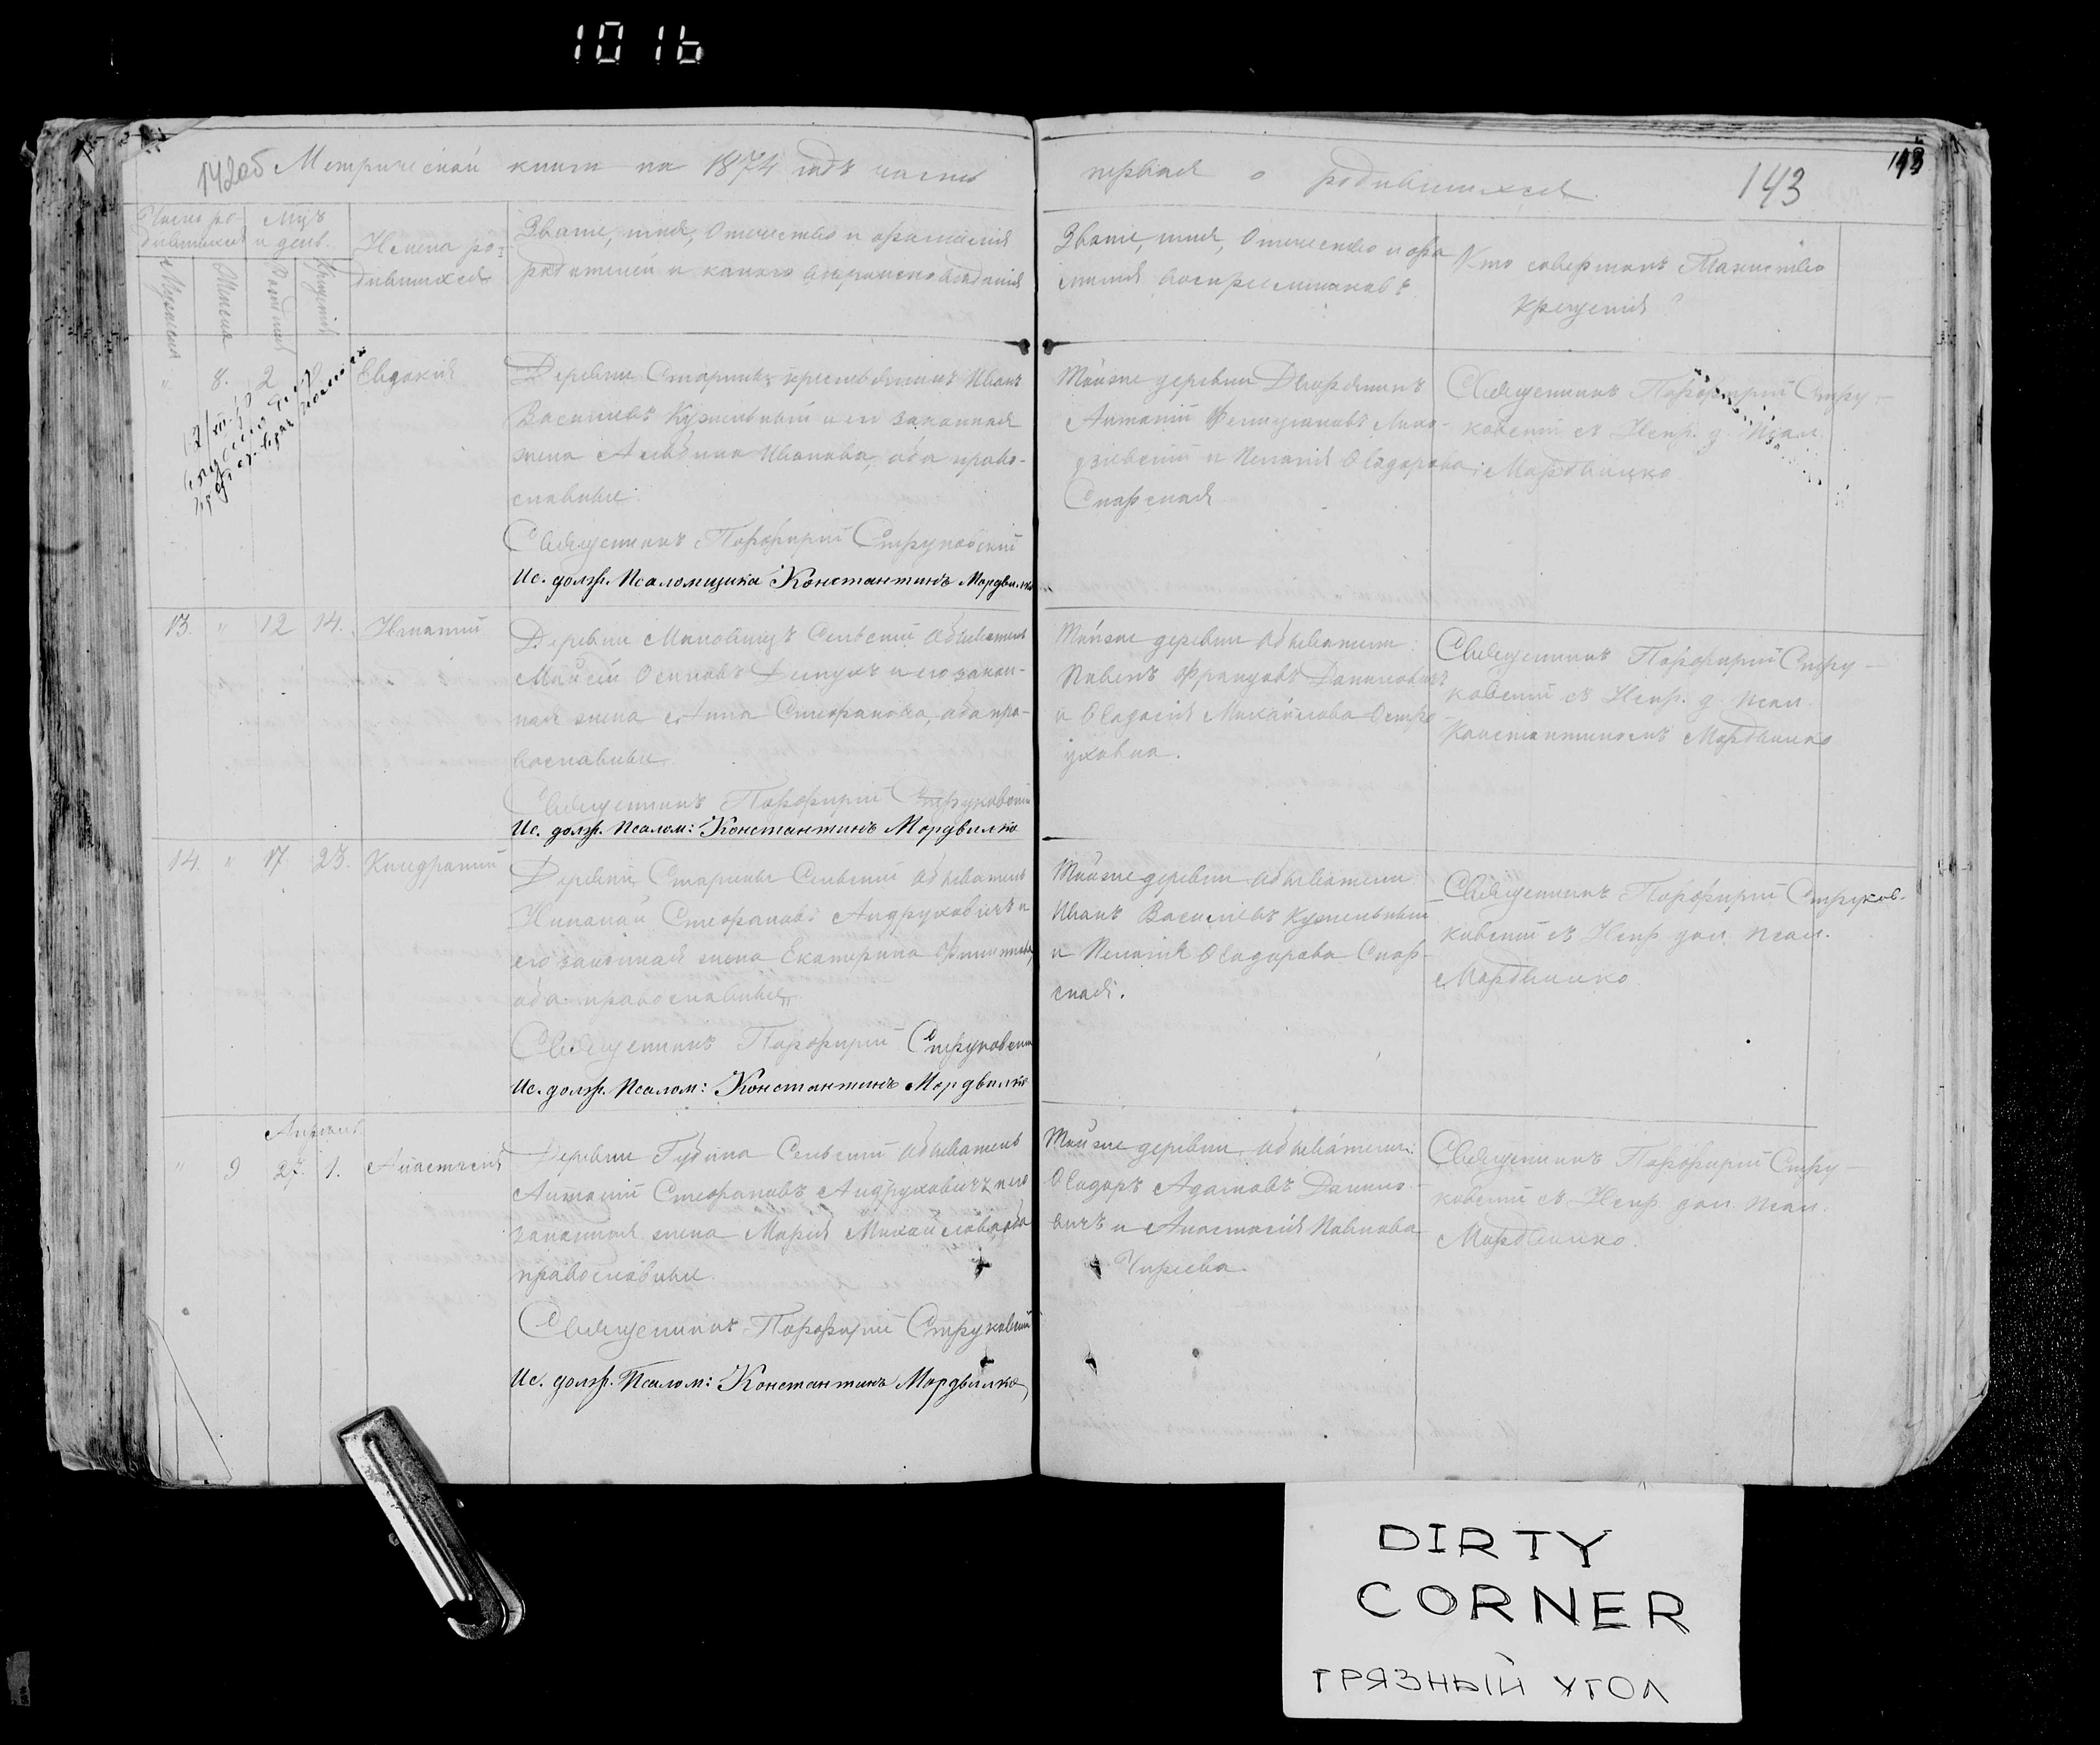 1016
142об Метрической книги на 1874 годъ часть
первая о родившихся.
143
143
Число ро-
дившихся
Мцъ
и день.
Мужеска
Женска
Рожденія
Крещенія
Имена ро-
дившихся
Званіе, имя, Отчество и фамилія
родителей и какого вѣроисповѣданія
Званіе, имя, Отчество и фа
милія воспріемниковъ
Кто совершалъ Таинство
Крещенія?
" 8. 2 Евдокія
Деревни Старины крестьянинъ Иванъ
Васильевъ Кужельный и его законная
жена Альбина Иванова, оба право-
славные.
Священникъ Порфирій Струковскій
Ис. долж. Псаломщика Константинъ Мордвилко
Тойже деревни Дворянинъ
Антоній
и Пелагія Ѳедорова
Священникъ Порфирій Стру-
ковскій съ Испр. д. Псал.
Мордвилко
13. " 12 14. Игнатій
Деревни Сельскій обыватель
Мойсей Осиповъ и его закон-
ная жена Анна Стефанова, оба пра-
вославные
Священникъ Порфирій Струковскій
Ис. долж. Псалом: Константинъ Мордвилко
Тойже деревни обыватели:
Павелъ Францовъ Даниловичъ
и Ѳадосія Михайлова
Священникъ Порфирій Стру-
ковскій съ Испр. д. Псал.
Константиномъ Мордвилко
14. " 17 23. Киндратій
Деревни Старины Сельскій обыватель
Николай Стефановъ Андруховичъ и
его законная жена Екатерина
оба православные
Священникъ Порфирій Струковскій
Ис. долж. Псалом: Константинъ Мордвилко
Тойже деревни обыватели
Иванъ Васильевъ Кужельный
и Пелагія Ѳадорова
Священникъ Порфирій Струков-
ковскій съ Испр дол. Псал.
Мордвилко
Апрель
" 9 27. 1. Анастасія
Деревни Губина Сельскій обыватель
Антоній Стефановъ Андруховичъ и его
законная жена Марія Михайлова, оба
православные.
Священникъ Порфирій Струковскій
Ис. долж. Псалом: Константинъ Мордвилко
Тойже деревни обыватели:
Ѳадоръ Адамовъ Данило-
вичъ и Анастасія Павлова
Чирьева.
Священникъ Порфирій Стру-
ковскій съ Испр дол. Псал.
Мордвилко.
DIRTY
CORNER
ГРЯЗНЫЙ УГОЛ